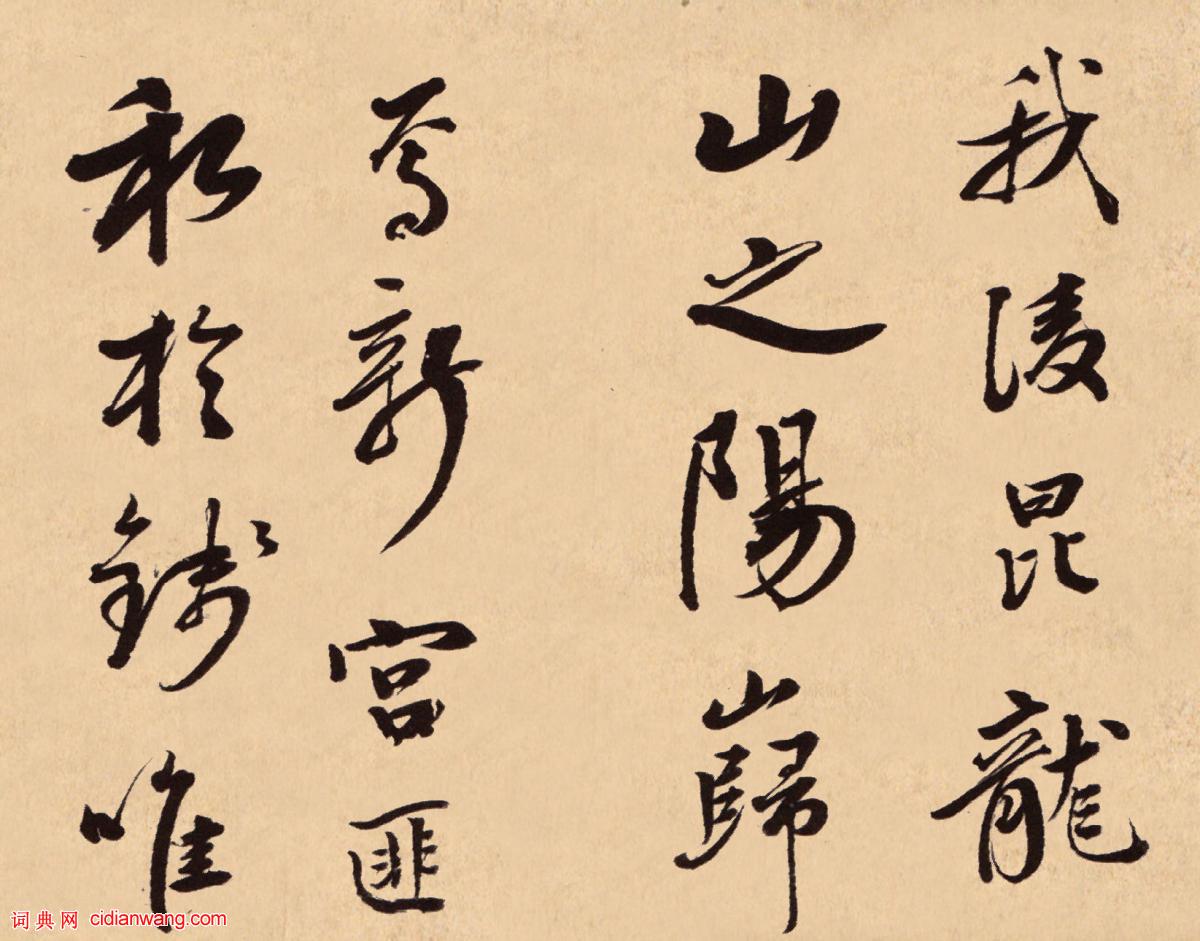 我陵昆龍
山之陽巋
焉新宮匪
私於錢唯
词典网 cidianwang.com